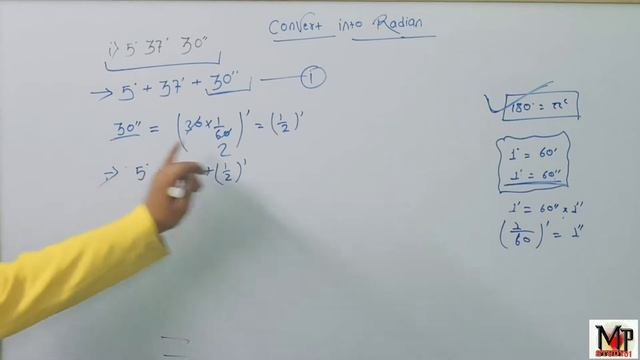 Convert into Radian
i) 5° 37' 30"
→ 5° + 37' + 30" — (i)
30" = (30 × 1/60)' = (1/2)'
2
⇒ 5° + (1/2)'
180° = π^c
1° = 60'
1' = 60"
1' = 60" × 1"
(1/60)' = 1"
MP